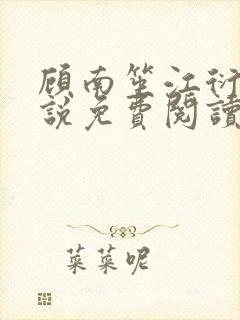 顾南笙江衍
說免費閱讀
菜菜呢